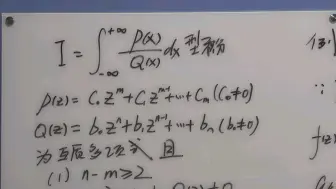 I = ∫_{-∞}^{+∞} P(x)/Q(x) dx 型积分
P(z) = C₀z^m + C₁z^{m-1} + ... + C_m (C₀≠0)
Q(z) = b₀z^n + b₁z^{n-1} + ... + b_n (b₀≠0)
为互质多项式 且
(1) n-m≥2
例
∵
f(z